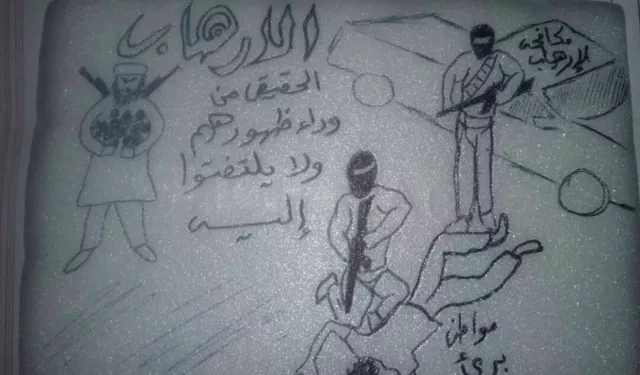 الإرهاب
الحقيقي من
وراء ظهورهم
ولا يلتفتوا
إليه
مكافحة
الإرهاب
مواطن
بريئ